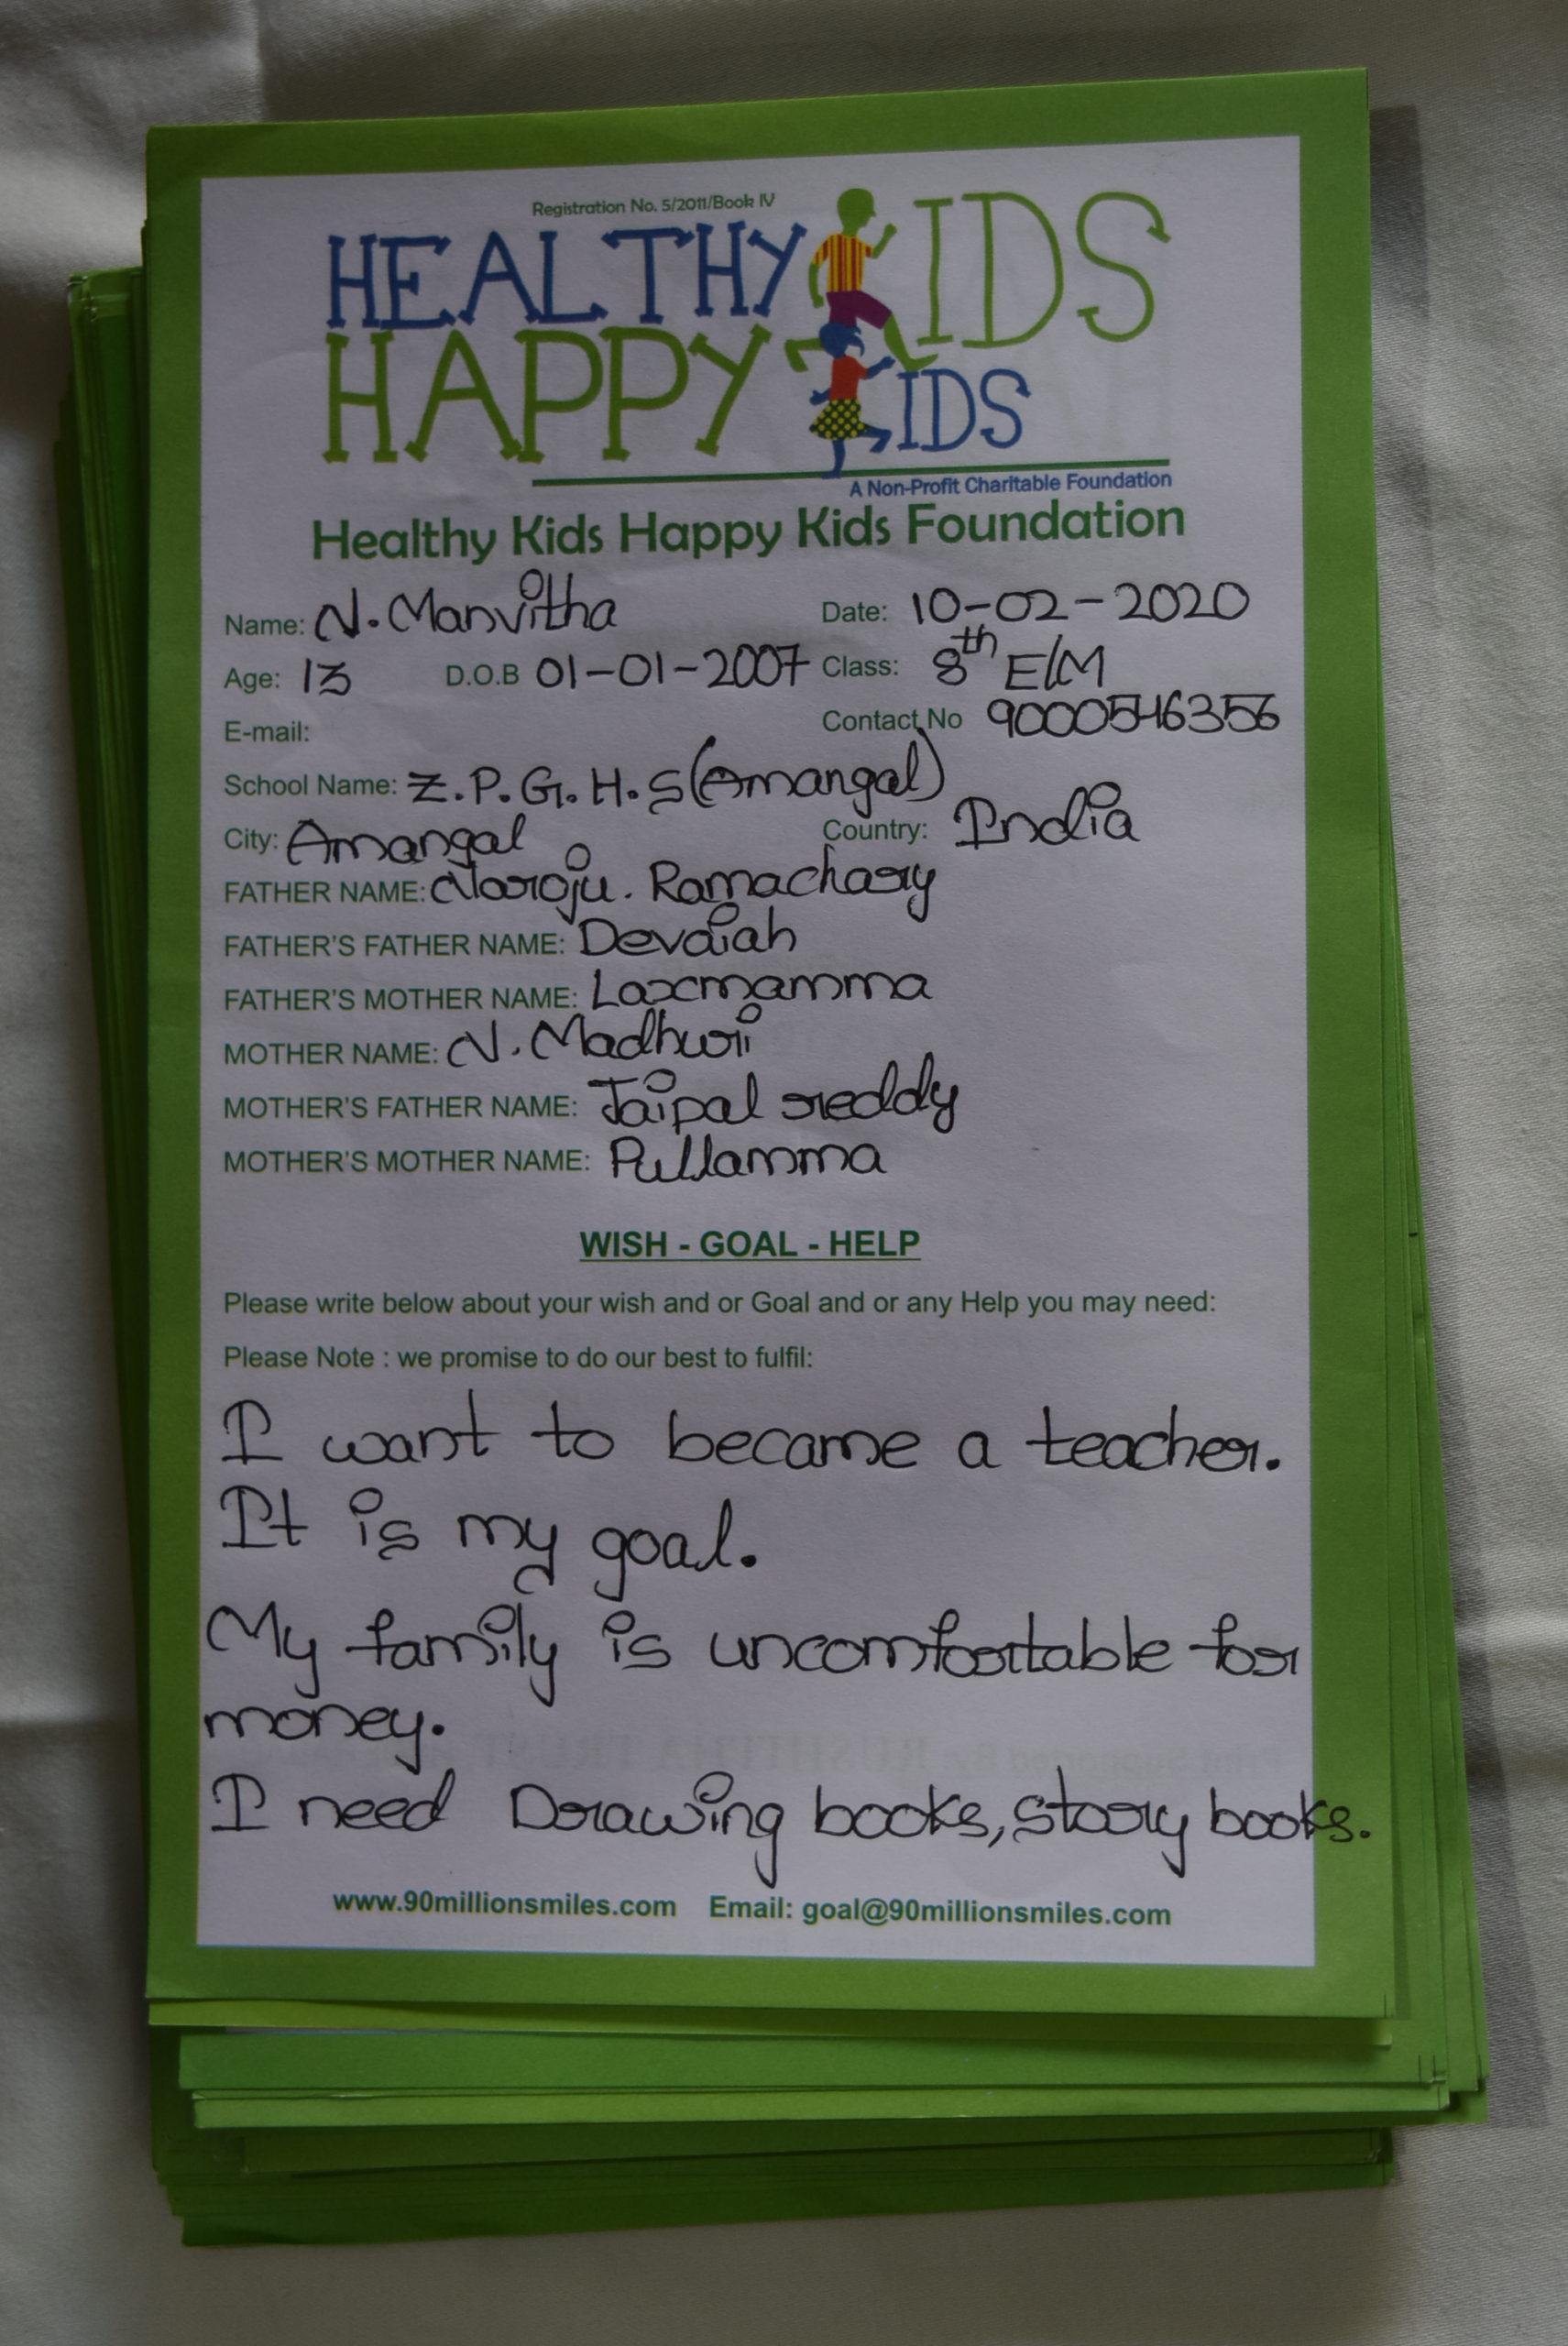 Registration No. 5/2011/Book IV
HEALTHY KIDS
HAPPY KIDS
A Non-Profit Charitable Foundation
Healthy Kids Happy Kids Foundation
Name: N. Manvitha Date: 10-02-2020
Age: 13 D.O.B 01-01-2007 Class: 8th E/M
E-mail: Contact No 9000546356
School Name: Z.P.G.H.S (Amangal)
City: Amangal Country: India
FATHER NAME: Naroju. Ramachary
FATHER'S FATHER NAME: Devaiah
FATHER'S MOTHER NAME: Laxmamma
MOTHER NAME: N. Madhuri
MOTHER'S FATHER NAME: Jaipal reddy
MOTHER'S MOTHER NAME: Pullamma
WISH - GOAL - HELP
Please write below about your wish and or Goal and or any Help you may need:
Please Note : we promise to do our best to fulfil:
I want to became a teacher.
It is my goal.
My family is uncomfortable for
money.
I need Drawing books, story books.
www.90millionsmiles.com Email: goal@90millionsmiles.com